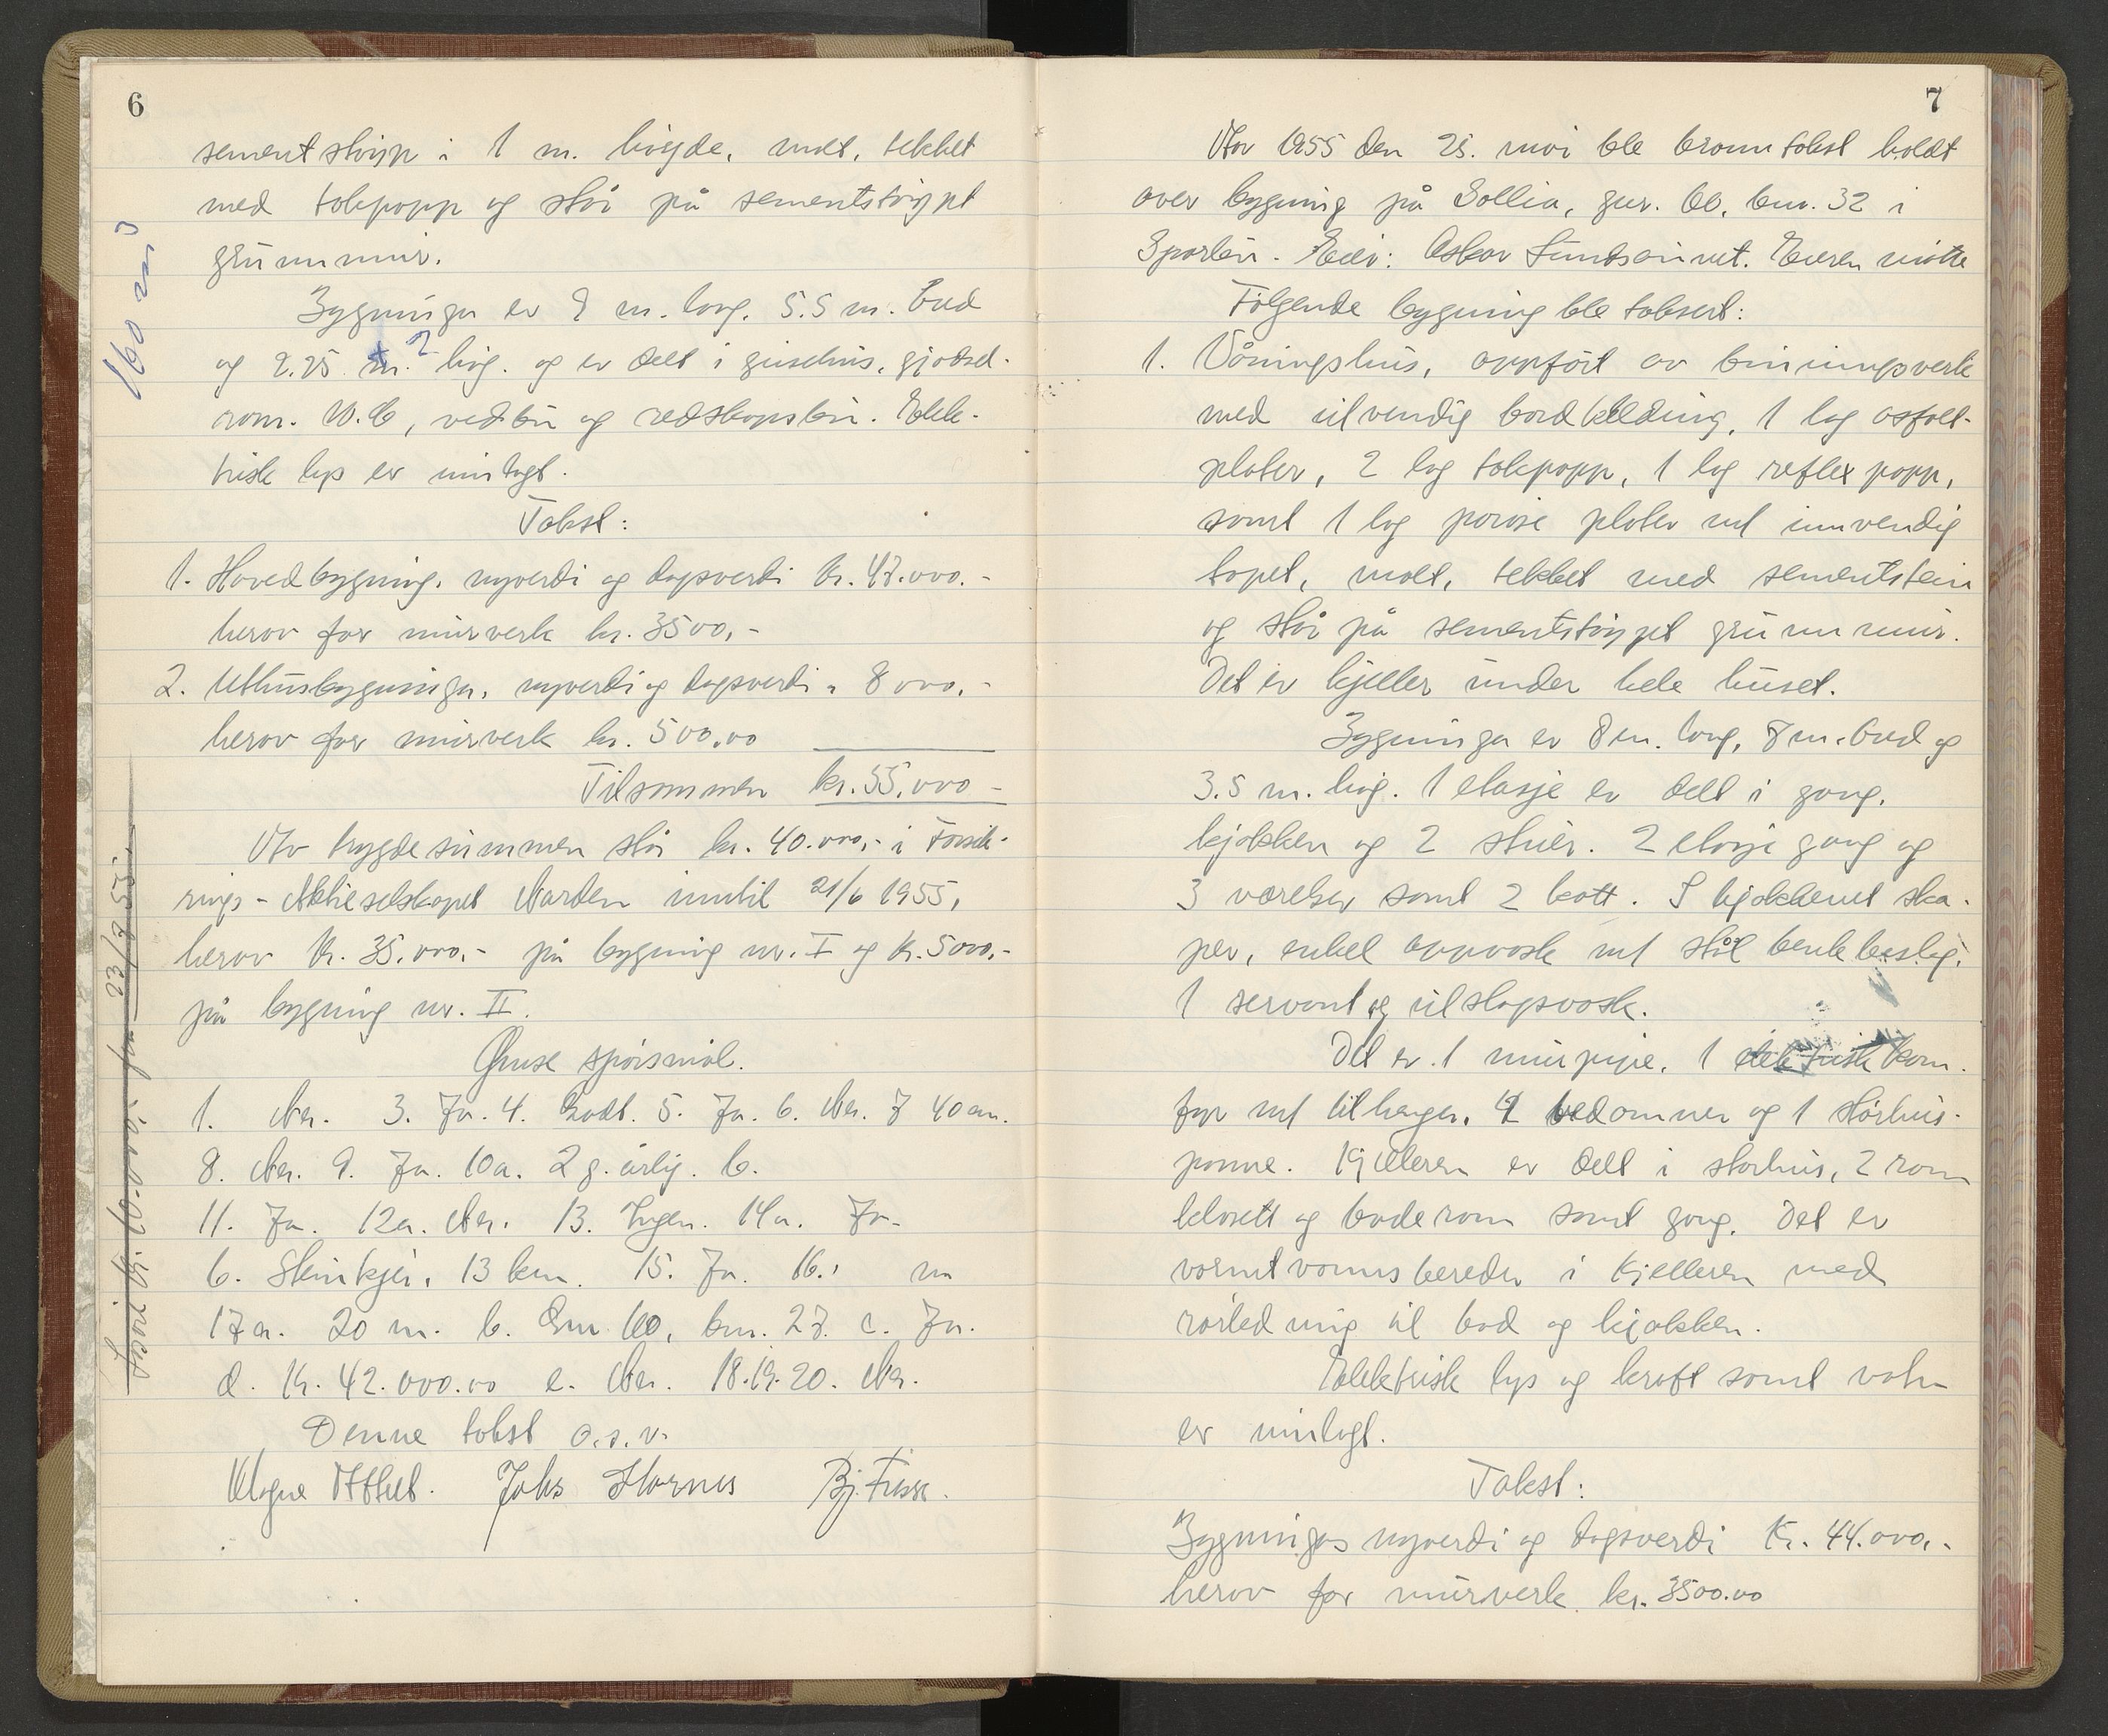 6
sementstøyp i 1 m. høyde, malt, tekket
med takpapp og står på sementstøypt
grunnmur.
Bygninga er 9 m. lang, 5.5 m. bred
og 2.25 m. høg. og er delt i grisehus, gjødsel-
rom. W.C, vedbu og redskapsbu. Elek-
trisk lys er innlagt.
Takst:
1. Hovedbygning, nyverdi og dagsverdi kr. 47.000.-
herav for murverk kr. 3500,-
2. Uthusbygninga, nyverdi og dagsverdi " 8000,-
herav for murverk kr. 500.00
Tilsammen kr. 55.000-
Av trygdesummen står kr. 40.000,- i Forsik-
rings-Aktieselskapet Norden inntil 21/6 1955,
herav kr. 35.000,- på bygning nr. I og kr. 5000,-
på bygning nr. II.
Ymse spørsmål.
1. Nei. 3. Ja. 4. Godt. 5. Ja. 6. Nei. 7 40 cm.
8. Nei. 9. Ja. 10a. 2 g. årlig. b.
11. Ja. 12a. Nei. 13. Ingen. 14a. Ja.
b. Steinkjer, 13 km. 15. Ja. 16.
17a. 20 m. b. Gnr 60, bnr. 27. c. Ja.
d. Kr. 42.000.00 e. Nei. 18.19.20. Nei.
Denne takst o.s.v.
Johs Bj.
160 m3
23/7 55.
7
År 1955 den 25. mai ble branntakst holdt
over bygning på Sollia, gnr. 60, bnr. 32 i
Sparbu. Eier: Oskar Sundsaunet. Eieren møtte
Følgende bygning ble taksert:
1. Våningshus, oppført av bindingsverk
med utvendig bordkledning, 1 lag asfalt-
plater, 2 lag takpapp, 1 lag reflex papp,
samt 1 lag porøse plater m/ innvendig
tapet, malt, tekket med sementstein
og står på sementstøypt grunnmur.
Det er kjeller under hele huset.
Bygninga er 8 m. lang, 7 m. bred og
3.5 m. høg. 1 etasje er delt i gang,
kjøkken og 2 stuer. 2 etasje gang og
3 værelser samt 2 kott. I kjøkkenet ska-
per, enkel oppvask m/ stål benkbeslag,
1 servant og utslagsvask.
Det er 1 murpipe, 1 elektrisk kom-
fyr m/ tilhenger, 4 vedomner og 1 størhus-
panne. Kjelleren er delt i størhus, 2 rom
klosett og baderom samt gang. Det er
varmtvannsbereder i kjelleren med
rørledning til bad og kjøkken.
Elektrisk lys og kraft samt vatn
er innlagt.
Takst:
Bygningas nyverdi og dagsverdi Kr. 44.000,-
herav for murverk kr. 3500.00